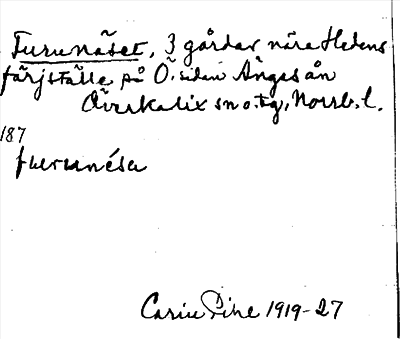 Furunäset, 3 gårdar nära Hedens
färjställe på Ö. sidan Ängesån
Överkalix sn o. tg, Norrb. l.
187
furunésα
Carin Pihl 1919-27